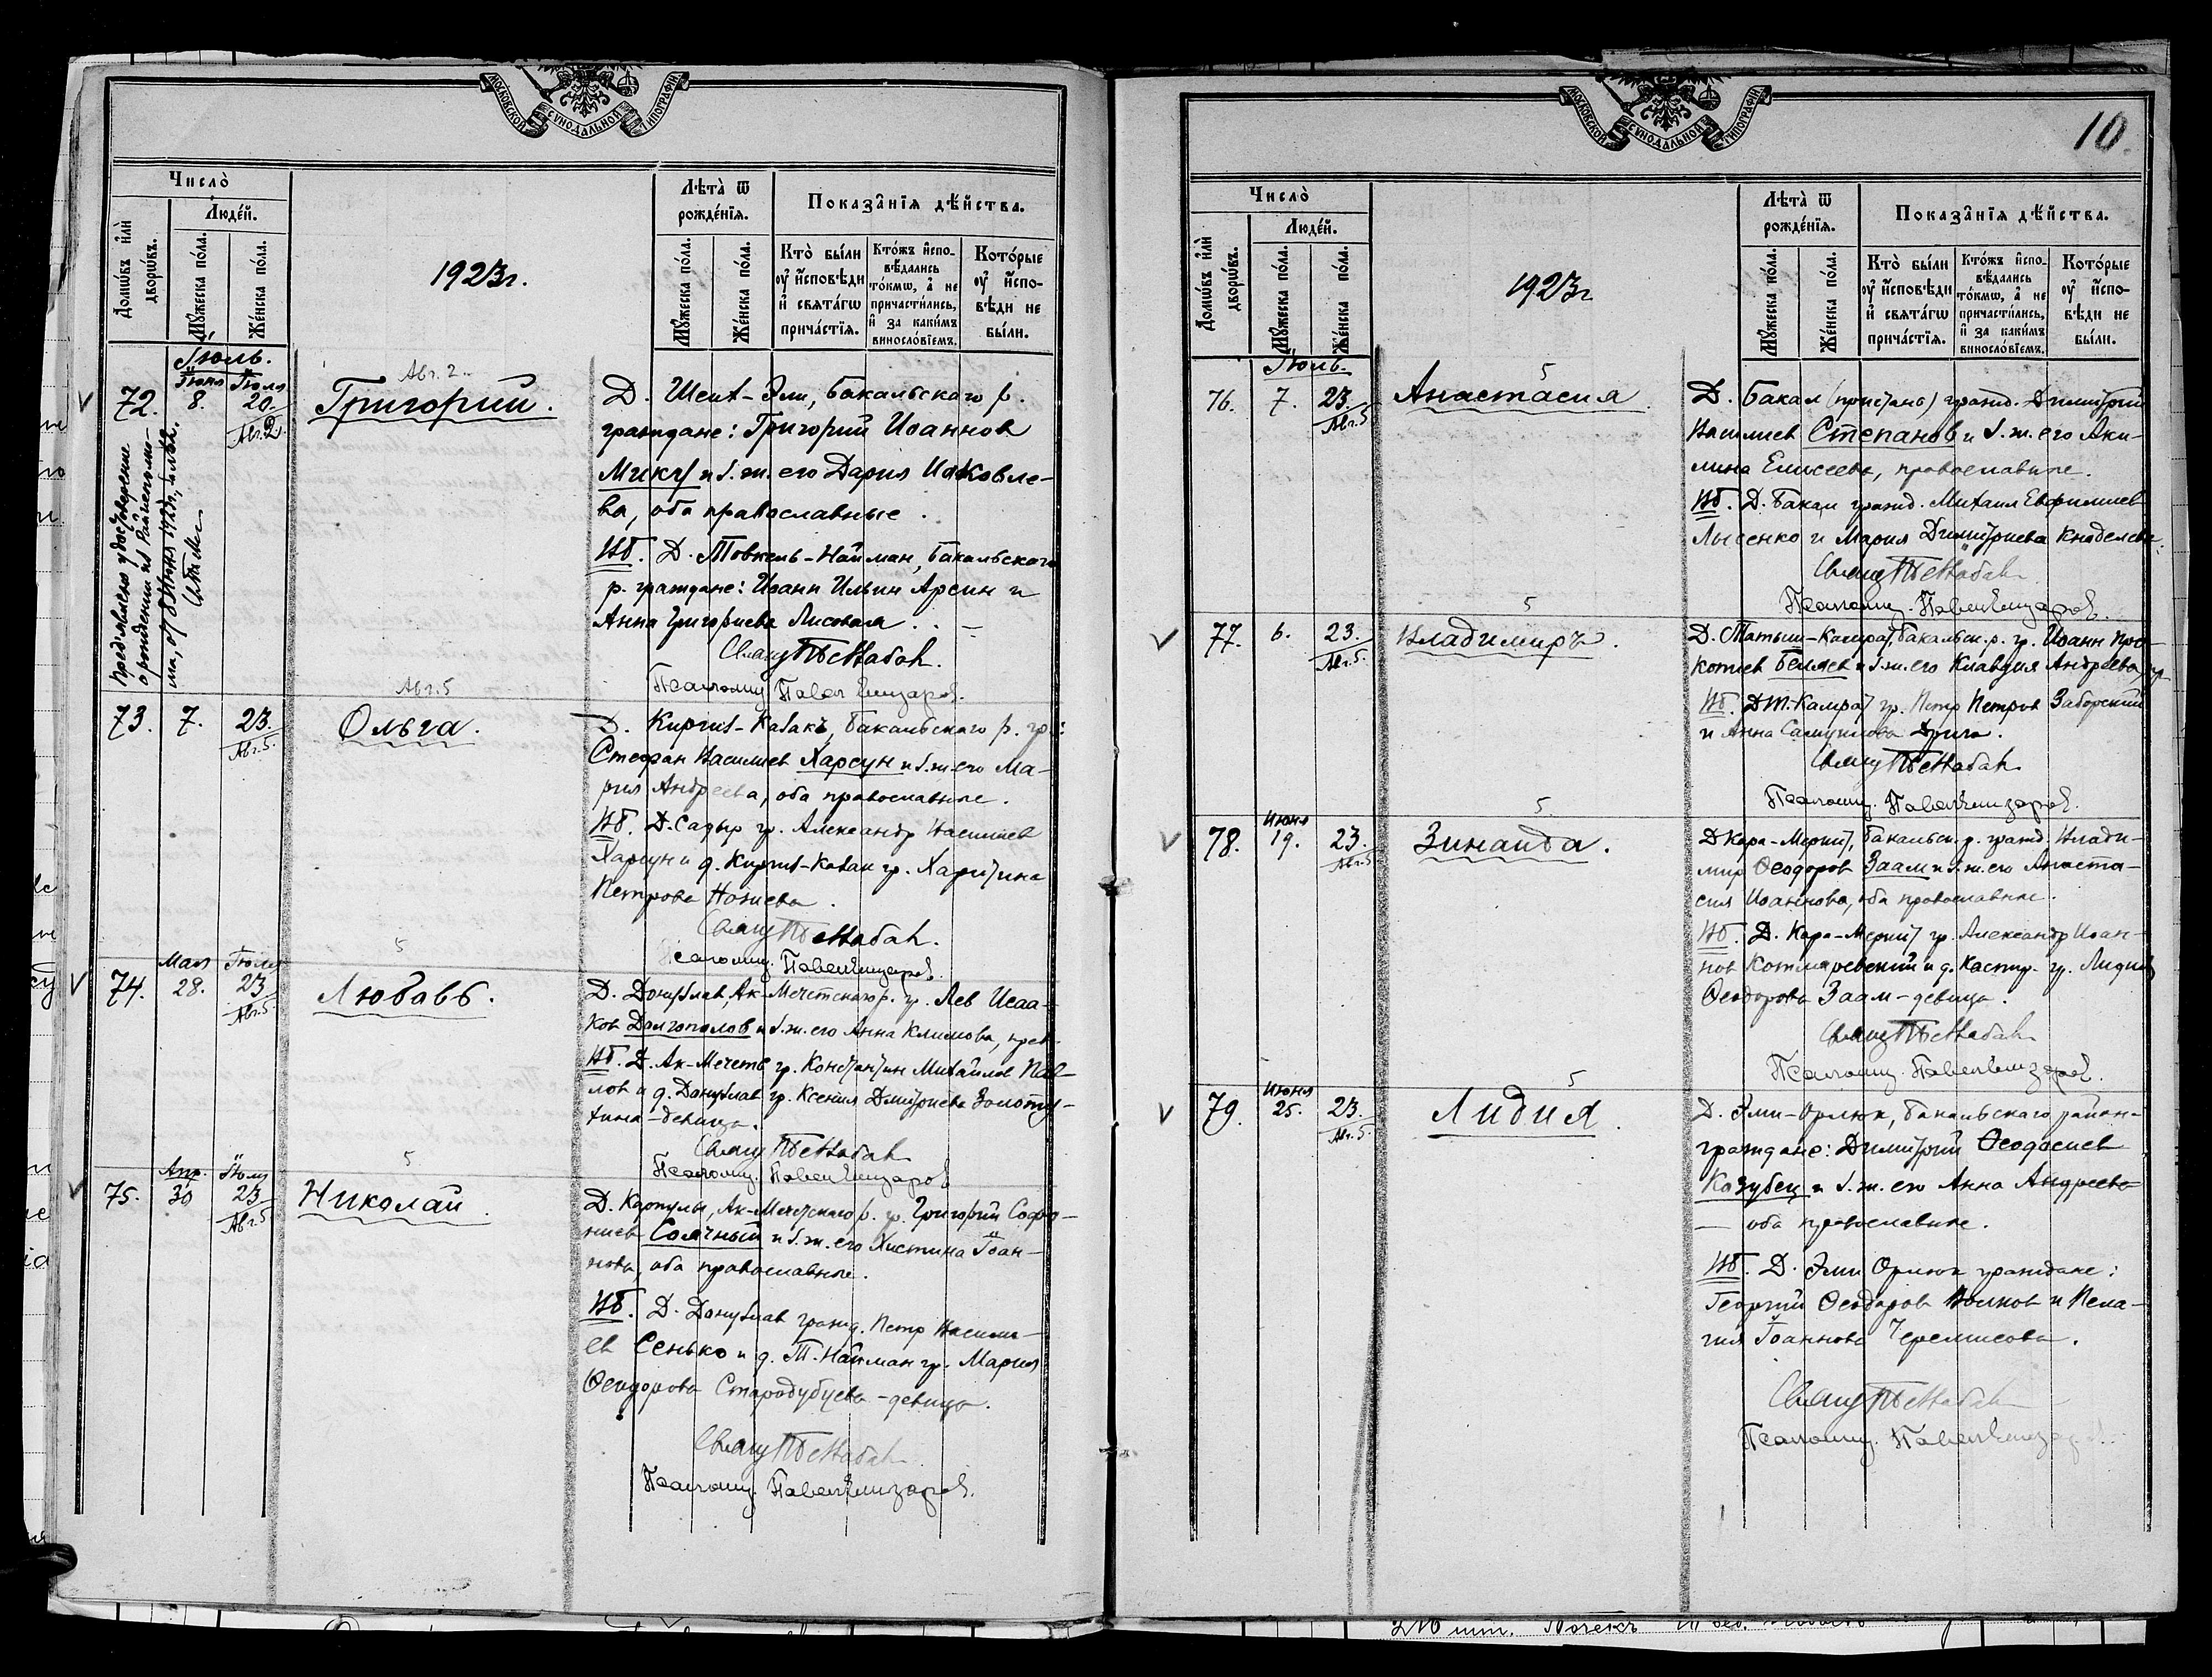 МОСКОВСКОЙ СѴНОДАЛЬНОЙ ТИПОГРАФІИ
Число̀
Люде́й.
Домѡ́въ и҆лѝ дворѡ́въ.
Мꙋ́жеска по́ла.
Же́нска по́ла.
1923г.
Лѣта̀ ѿ рожде́нїѧ.
Мꙋ́жеска по́ла.
Же́нска по́ла.
Показа̑нїѧ дѣ́йства.
Кто̀ бы́ли оу҆ и҆сповѣ́ди и҆ свѧта́гѡ прича́стїѧ.
Кто́жъ и҆сповѣ́дались то́кмѡ, а҆ не причасти́лись, и҆ за каки́мъ винослові́емъ.
Кото́рые оу҆ и҆сповѣ́ди не бы́ли.
Іюль.
72.
Іюля 8.
Іюля 20.
Авг. 2.
Авг. 2.
Григорий.
Д. Шеих-Эли, Бакальского р.
граждане: Григорий Иоаннов
Микут и з. ж. его Дария Иаковле-
ва, оба православные.
Вб. Д. Товкель-Найман, Бакальского
р. граждане: Иоанн Ильин Арсин и
Анна Григориева Лисовая.
Свящ
Псаломщ. Павел Елизаров.
Предъявлено удостоверение
о рождении из
от 8 Июня 1923г., за № 62.
73.
7.
23.
Авг. 5.
Авг. 5
Ольга.
Д. Киргиз-Казакъ, Бакальского р. гр.:
Стефан Василиев Харсун и з. ж. его Ма-
рия Андреева, оба православные.
Вб. Д. Садыр гр. Александр Василиев
Харсун и д. Киргиз-Казак гр. Харитина
Петрова
Свящ
Псаломщ. Павел Елизаров.
74.
Мая 28.
Іюля 23
Авг. 5
5
Любавь.
Д. Донузлав, Ак-Мечетского р. гр. Лев Исаа-
ков Долгополов и з. ж. его Анна Климова, прав.
Вб. Д. Ак-Мечеть гр. Константин Михаилов Пав-
лов и д. Донузлав гр. Ксения Димитриева Золоту-
хина-девица.
Свящ
Псаломщ. Павел Елизаров
75.
Апр. 30
Іюля 23
Авг. 5
5
Николай.
Д. Картулы, Ак-Мечетского р. гр. Григорий Софро-
ниев Солчный и з. ж. его Хистина Іоан-
нова, оба православные.
Вб. Д. Донузлав гражд. Петр Васили-
ев Сенько и д. Т. Найман гр. Мария
Ѳеодорова Стародубцева-девица.
Свящ
Псаломщ. Павел Елизаров.
МОСКОВСКОЙ СѴНОДАЛЬНОЙ ТИПОГРАФІИ
10.
Число̀
Люде́й.
Домѡ́въ и҆лѝ дворѡ́въ.
Мꙋ́жеска по́ла.
Же́нска по́ла.
1923г
Лѣта̀ ѿ рожде́нїѧ.
Мꙋ́жеска по́ла.
Же́нска по́ла.
Показа̑нїѧ дѣ́йства.
Кто̀ бы́ли оу҆ и҆сповѣ́ди и҆ свѧта́гѡ прича́стїѧ.
Кто́жъ и҆сповѣ́дались то́кмѡ, а҆ не причасти́лись, и҆ за каки́мъ винослові́емъ.
Кото́рые оу҆ и҆сповѣ́ди не бы́ли.
Іюль.
76.
7.
23.
Авг. 5
5
Анастасия.
Д. Бакал (пристань) гражд. Димитрий
Василиев Степанов и з. ж. его Аки-
лина Елисеева, православные.
Вб. Д. Бакал гражд. Михаил Евфимиев
Лысенко и Мария Димитриева
Свящ
Псаломщ. Павел Елизаров.
77.
6.
23.
Авг. 5.
5
Владимиръ.
Д. Татыш-Камрат, Бакальск. р. гр. Иоанн Про-
копиев Беляев и з. ж. его Клавдия Андреева, пр
Вб. Д. Т.-Камрат гр. Петр Петров Заборский
и Анна Самуилова Друга.
Свящ
Псаломщ. Павел Елизаров.
78.
Июня 19.
23.
Авг. 5
5
Зинаида.
Д Кара-Меркит, Бакальск. р. гражд. Влади-
мир Ѳеодоров Заам и з. ж. его Анаста-
сия Иоаннова, оба православные.
Вб. Д. Кара-Меркит гр. Александр Иоан-
нов Котляревский и д. Кастир. гр. Лидия
Ѳеодорова Заам-девица.
Свящ
Псаломщ. Павел Елизаров.
79.
Июня 25.
23.
Авг. 5.
5
Лидия.
Д. Эли-Орлюк, Бакальского район-
граждане: Димитрий Ѳеодосиев
Козубец и з. ж. его Анна Андреева
— оба православные.
Вб. Д. Эли Орлюк граждане:
Георгий Ѳеодоров Волков и Пела-
гия Іоаннова Черемисова.
Свящ
Псаломщ. Павел Елизаров.